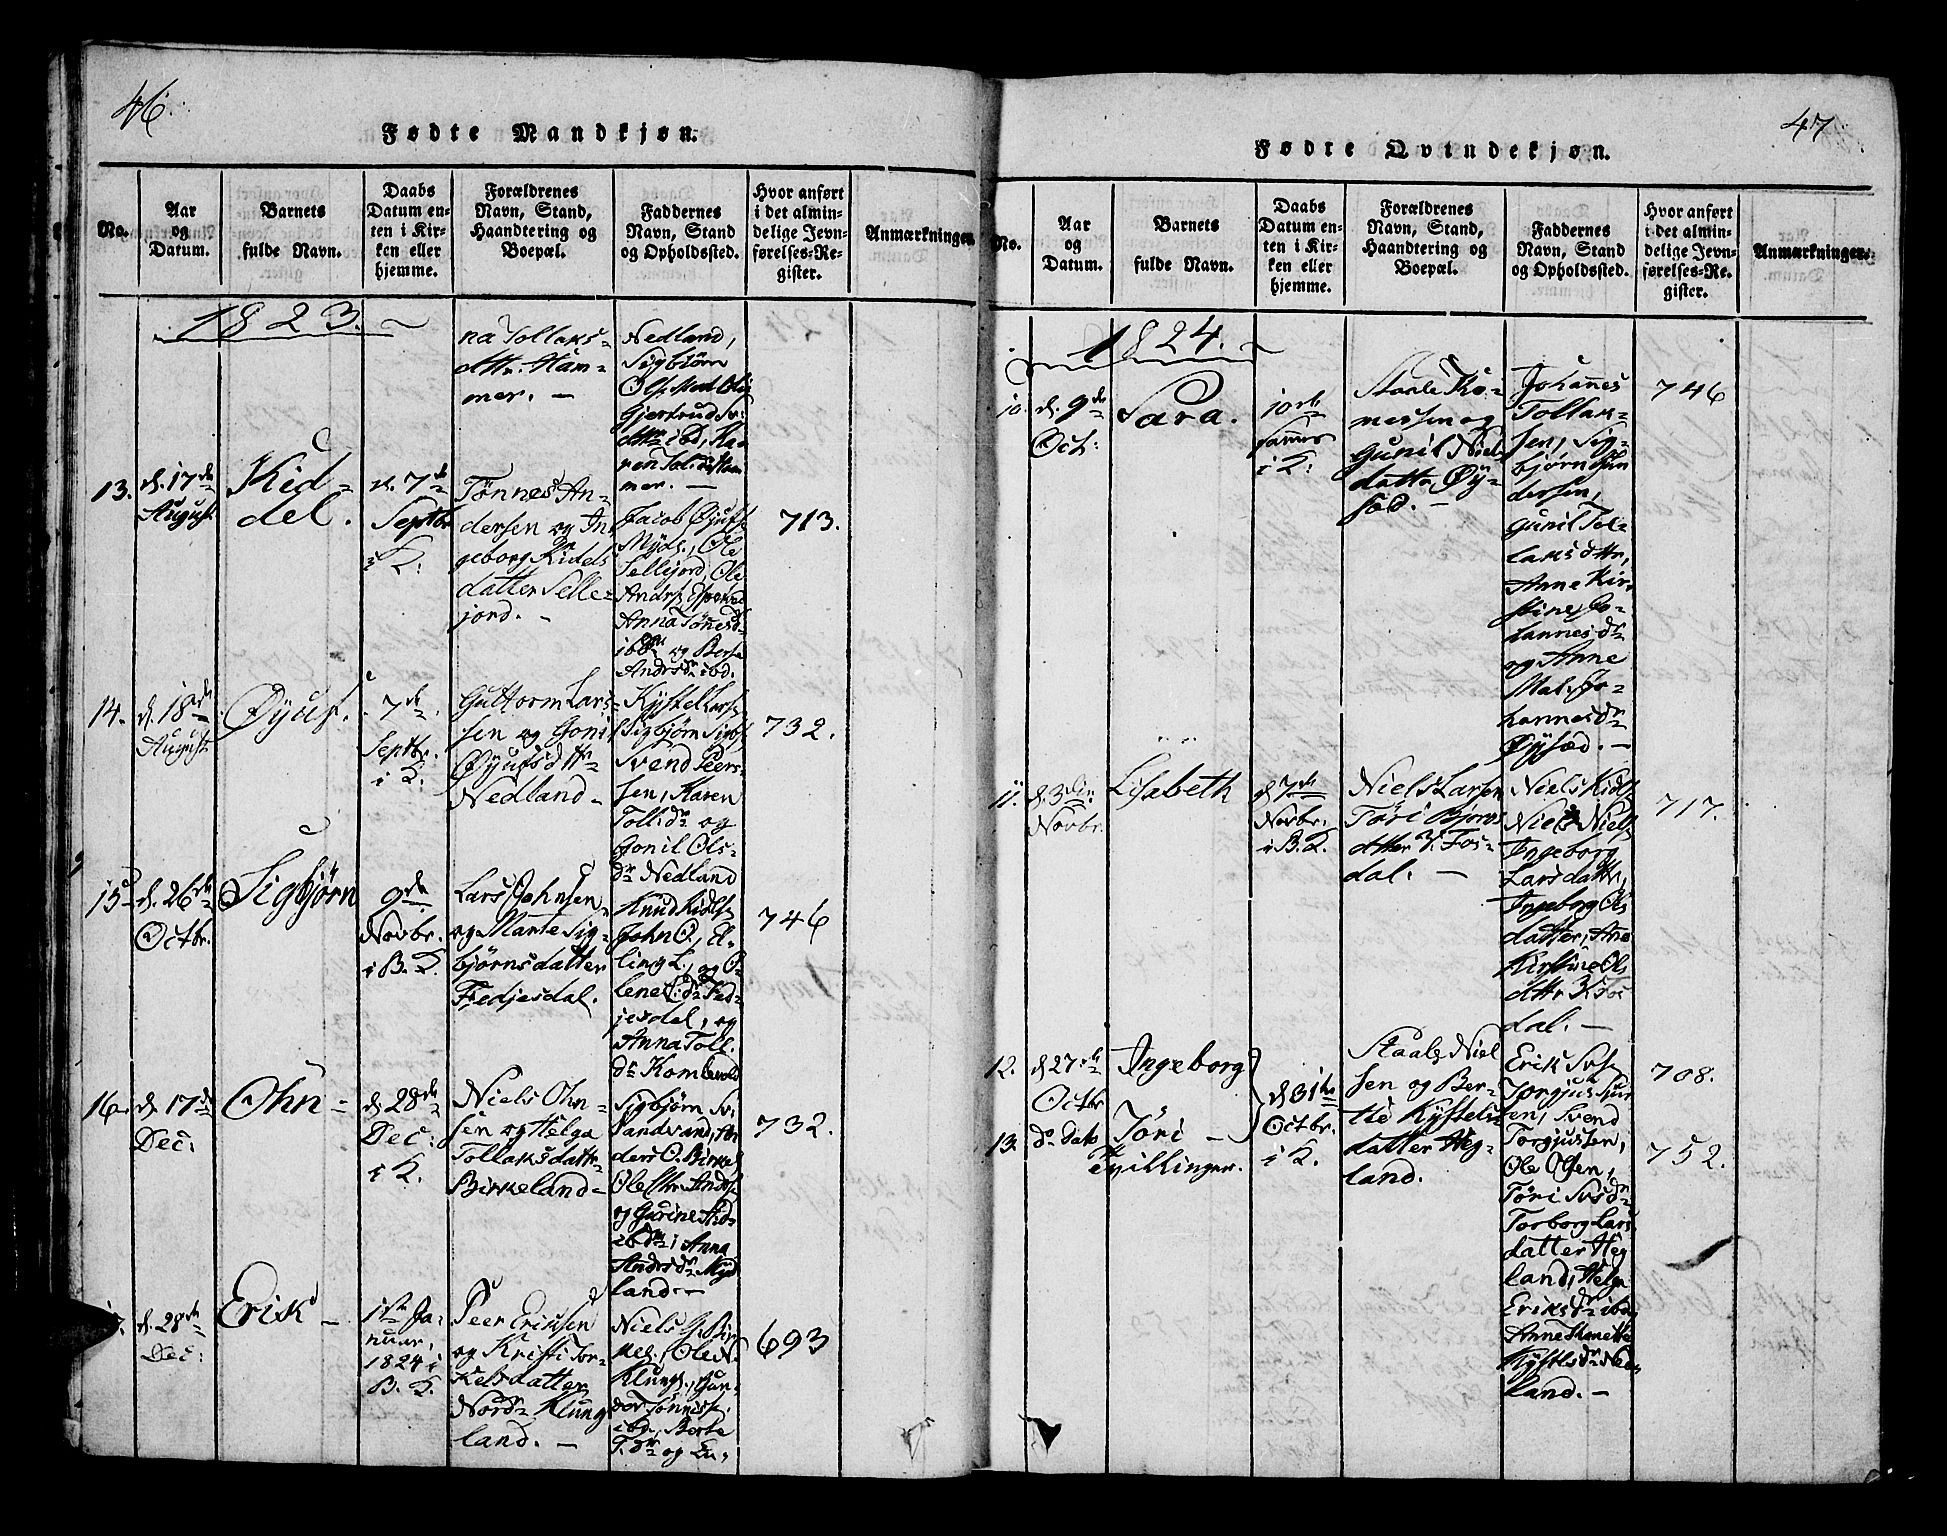 46.
Fødte Mandkjøn.
No.
Aar
og
Datum.
Barnets
fulde Navn.
Daabs
Datum en-
ten i Kir-
ken eller
hjemme.
Forældrenes
Navn, Stand,
Haandtering og
Boepæl.
Faddernes
Navn, Stand
og Opholdssted.
Hvor anført
i det almin-
delige Jevn-
førelses-Re-
gister.
Anmærkninger.
1823.
na Tollaks-
dttr. Ham-
mer. –
Nedland,
Sigbiörn
Gjertrud
mer. –
13.
d. 17de
August
Kid-
del.
d. 7de
Septbr
i K:
Tönnes An-
dersen og In-
geborg Kidels
datter Selle-
jord. –
Jacob Øjufs
Myds., Ole
Sellejord, Ole
Anna Tönesd
og Berte
713.
14.
d. 18de
August
Øyuf.
7de
Septbr.
i K:
Guttorm Lars-
sen og Goni
Øyufsdttr
Nedland –
Kystel Lars.
Sigbjørn Sigb
Svend Peers-
sen, Karen
Toll. dr og
Gonil Ols-
dr Nedland
732.
15
d. 26de
Octbr.
Sigbjørn
9de
Novbr.
i B. K.
Lars Johnsen
og Marte Sig-
björnsdatter
Fedjesdal.
Knud Kidls.
John O., El-
ling L., og O-
lene L. dr Fed-
jesdal, og
Anna Toll.
dr
746
16.
d. 17de
Dec:
Ohn –
d 28de
Dec:
i K.
Niels Ohn-
sen og Helga
Tollaksdattr
Birkeland –
Sigbjørn Sv.
Sandvand, An
ders O. Birkel
og Gurine
Anna
Andrsdr Myd
land. –
732.
d. 28de
Dec:
Erik –
1ste Ja-
nuar,
1824 i
B. K.
Peer Eriksen
og Kristi Tor-
kelsdatter
Nordr Klung
land. –
Niels G. Bir
kel., Ole N.
Klungl., Gun-
der Tönnes.
ibd., Berte
T. dr og En,
693
47.
Fødte Qvindekjøn.
No.
Aar
og
Datum.
Barnets
fulde Navn.
Daabs
Datum en-
ten i Kir-
ken eller
hjemme.
Forældrenes
Navn, Stand,
Haandtering og
Boepæl.
Faddernes
Navn, Stand
og Opholdssted.
Hvor anført
i det almin-
delige Jevn-
førelses-Re-
gister.
Anmærkninger.
1824.
10.
d. 9de
Oct:
Sara.
10de
i K:
Staale To-
messen og
Gunil Niels
datter Øy-
sæd. –
Johanes
Tollak-
sen, Sig-
bjørn Gun
dersen,
Gunil Tol-
laksdttr,
Anne Kir-
stine Jo-
hannesdr
og Anne
Mal. Jo-
hannesdr
Øysæd. –
746
11.
d. 3die
Novbr.
Lisabeth
d. 7de
Novbr.
i B. K.
Niels Larsen
Töri Björns
dtter K. Fos-
dal. –
Niels Kidls
Niels Niels
Ingeborg
Larsdattr,
Ingeborg Ols
datter, Ane
Kirstine Ols
dttr K. Fos
dal. –
717.
12.
d 27de
Octbr
Ingeborg
13.
do dato
Töri –
Tvillinger.
d 31te
Octbr.
i K.
Staale Niel
sen og Ber-
the Kystels
datter Heg-
land.
Erik Svs.
Torgjus Gun
sen, Svend
Torgjusten,
Ole Olsen,
Töri Svsdr
Torborg Lars
datter Heg
land, Helga
Eriksdr ibd.
Anne Tomette
Kystlsdr Ned
land. –
708.
752.